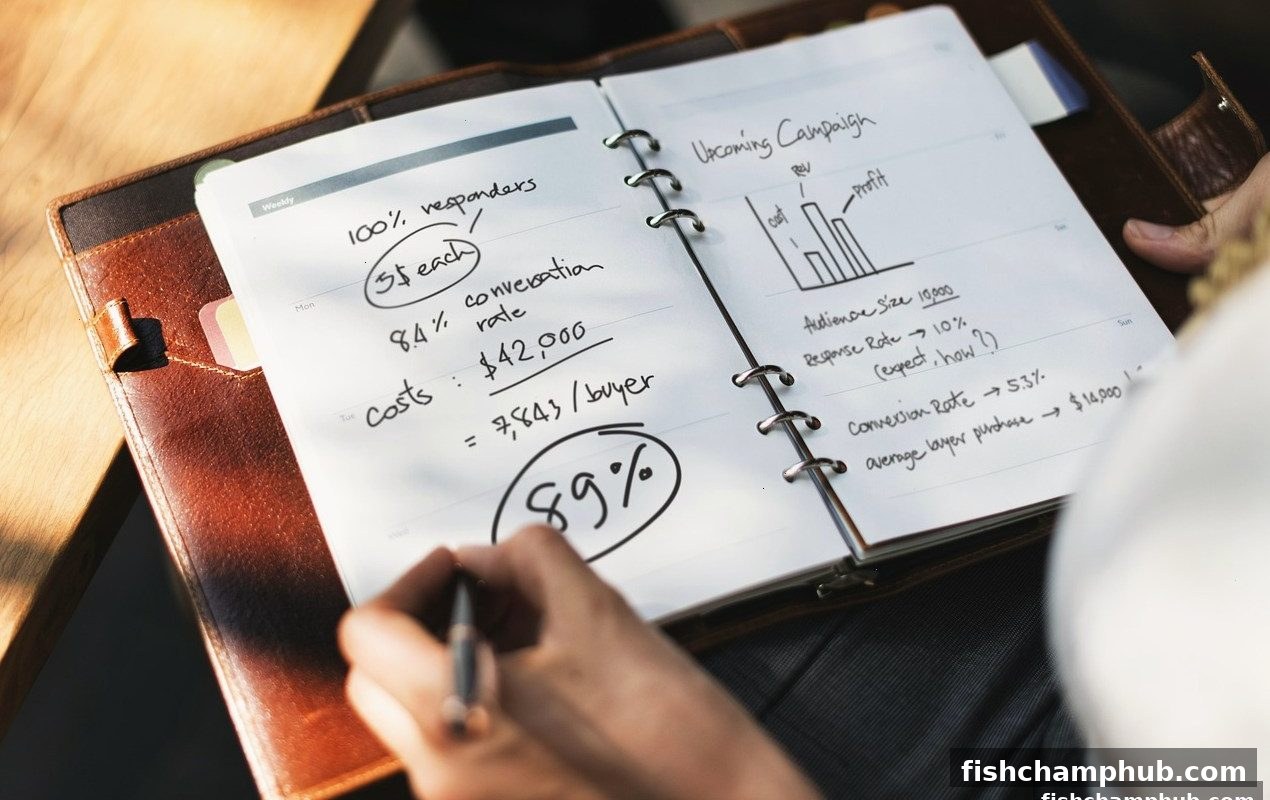 Weekly
100% responders
5$ each
Mon
8.4% conversation
rate
Tue
costs : $42,000
= 7,843 / buyer
Wed
89%
Upcoming Campaign
cost
Rev
Profit
Audience Size 10,000
Response Rate → 10%
(expect, how?)
Sun
Conversion Rate → 5.3%
average buyer purchase → $14,000
fishchamphub.com
fishchamphub.com